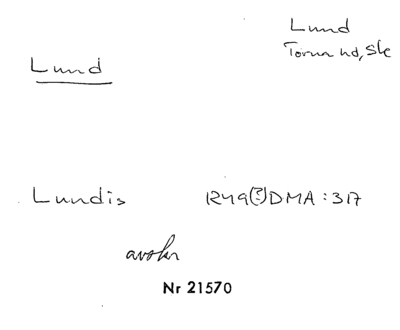 Lund
Torna hd, Sk
Lund
Lundis 1249(?) DMA: 317
avskr
Nr 21570